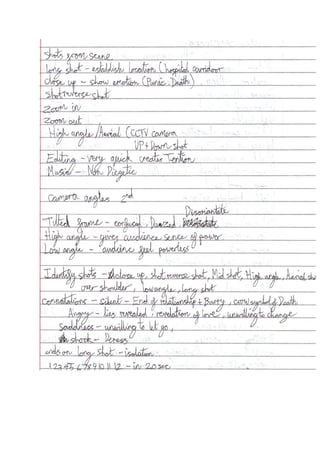 Shots from scene
long shot - establish location (hospital corridor
close up - show emotion (Panic, Death)
Shot reverse shot
Zoom in
Zoom out
High angle / Aerial (CCTV camera
UP + Down shot
Editing - very quick creates Tention
Music - Non Diegetic
Camera angles 2nd
Discorintate
Tilted frame - confused, Dazed,
High angle - gives audience sense of power
Low angle - audience feel powerless
Identify shots - close up, shot reverse shot, Mid shot, High angle, Aerial sh
over shoulder, low angle, long shot
connotations - silent - End of relationship + Barry, crow symbol of Death
Angry - lies revealed, revelation of love, unwilling to change
Saddness - unwilling to let go,
shock -
ends on long shot - isolation
1 2 3 4 5 6 7 8 9 10 11 12 - in 20 sec